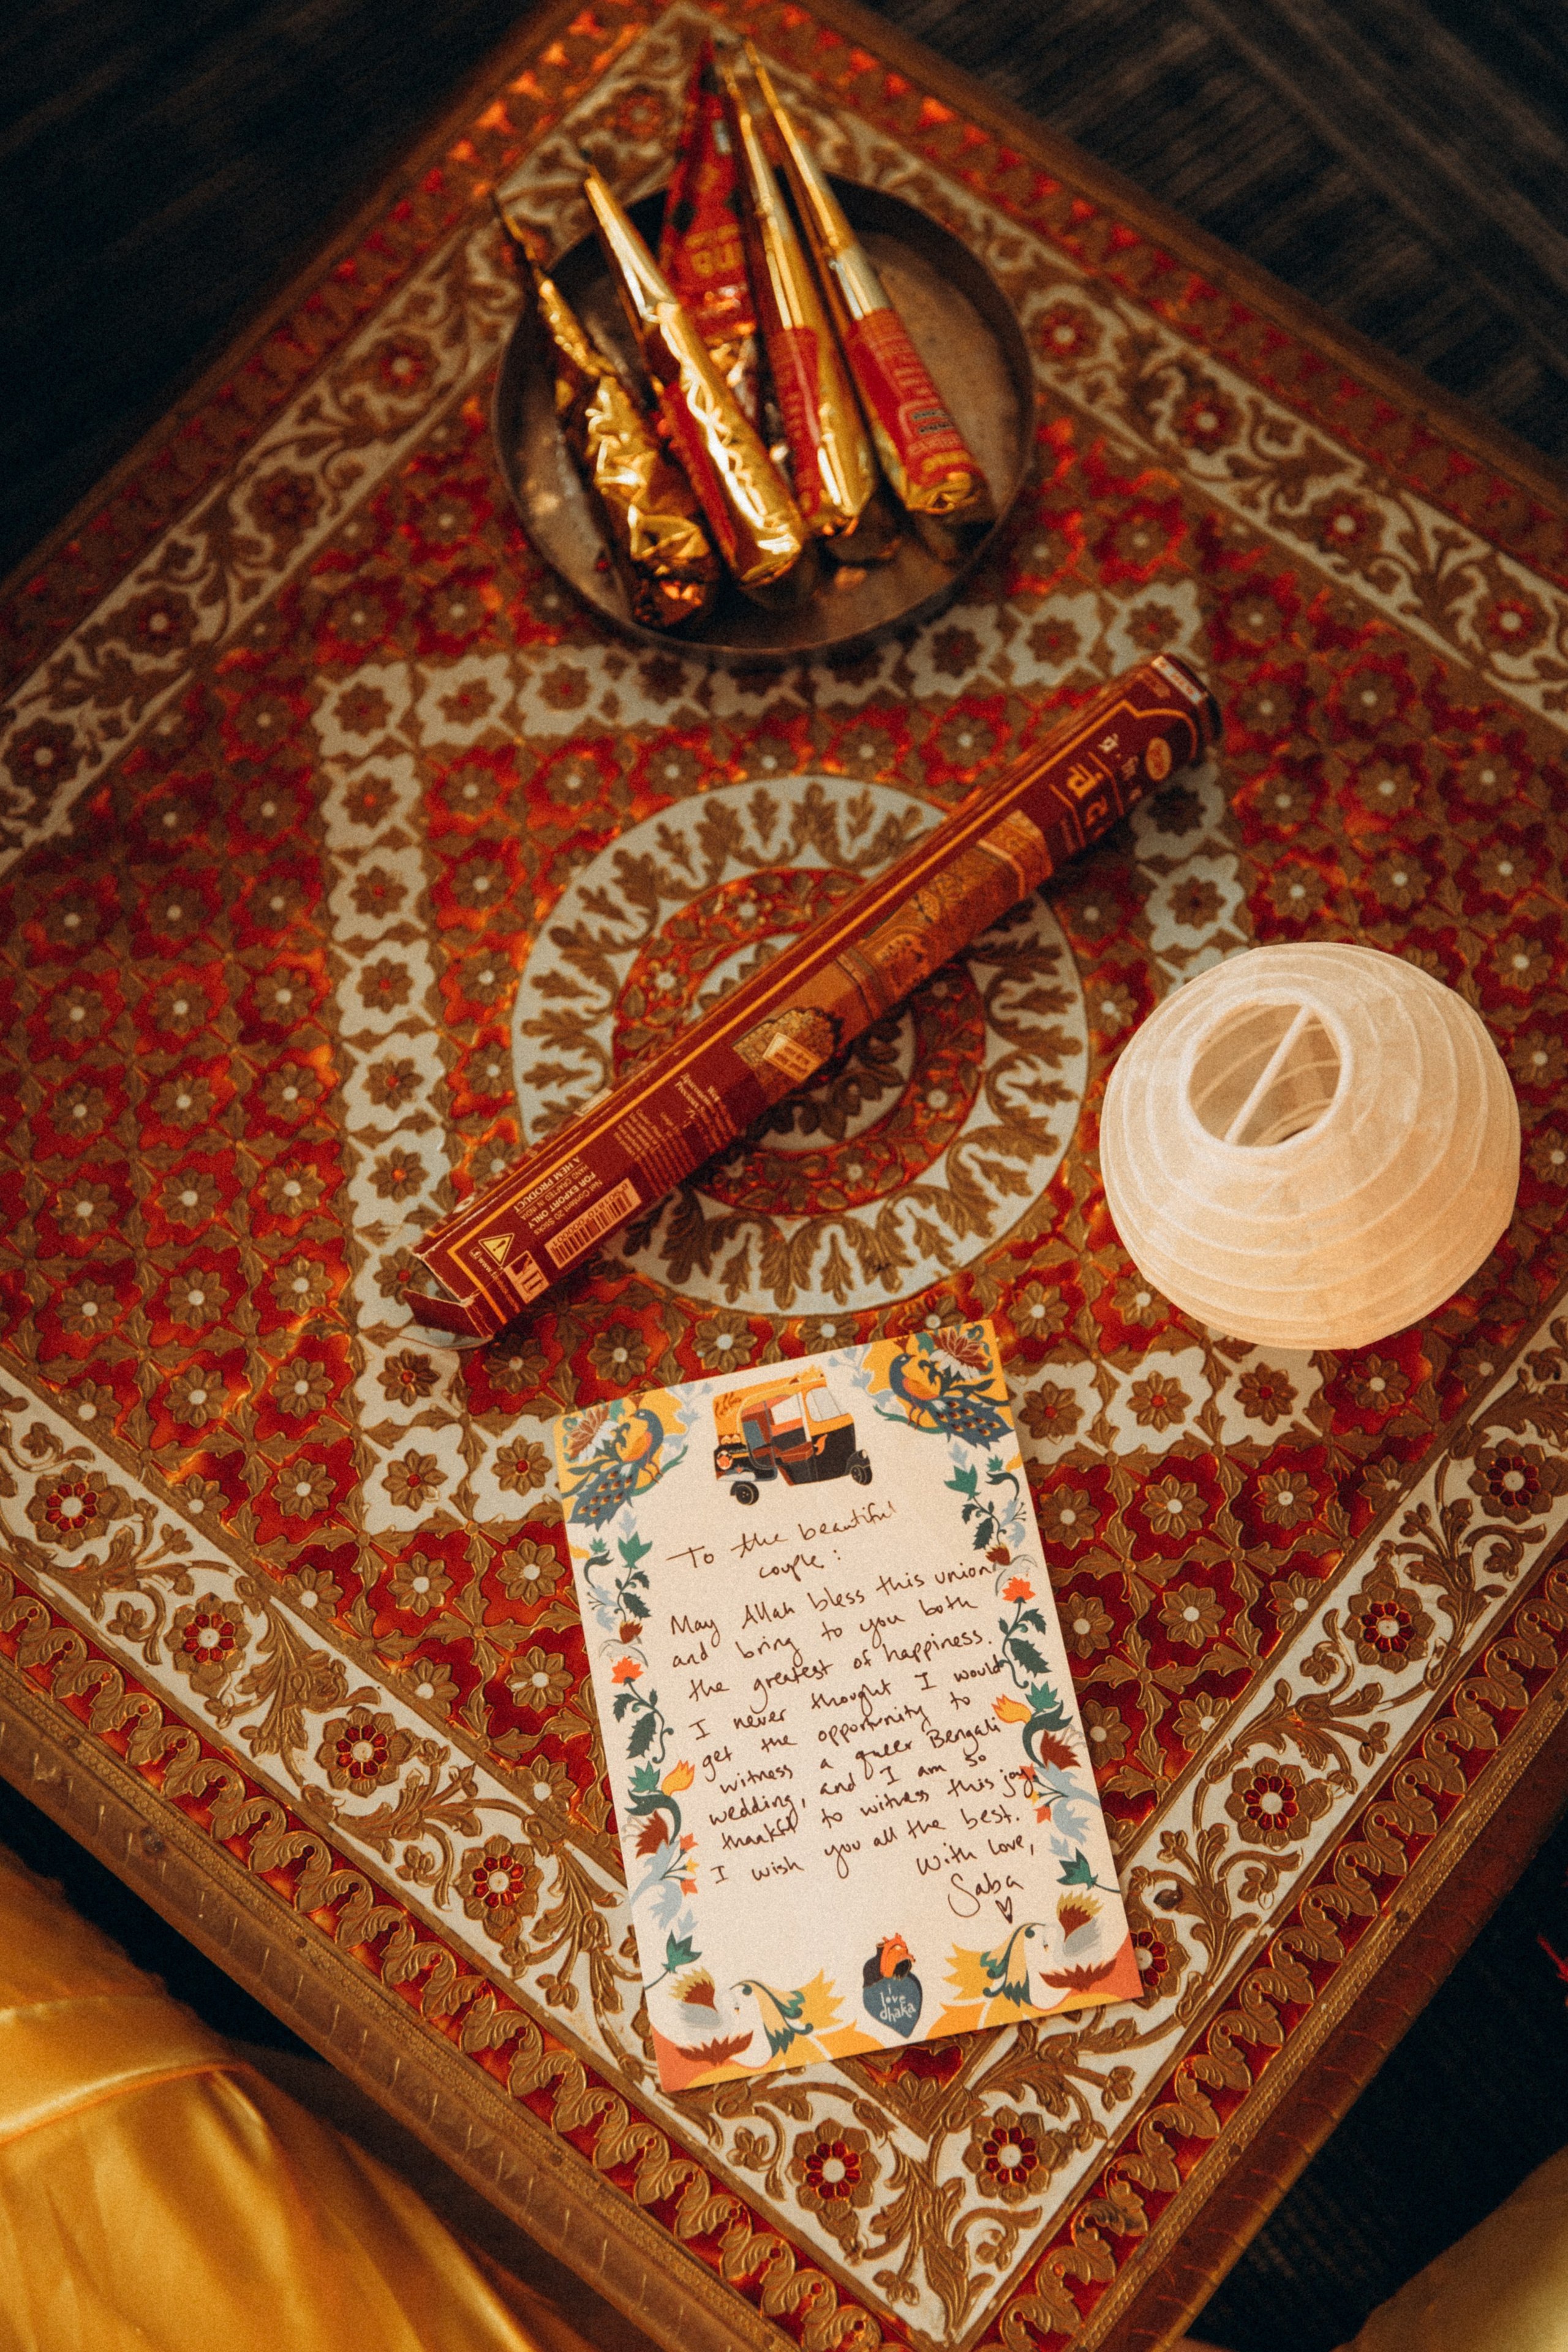 A HEM PRODUCT
HAND CRAFTED IN INDIA
FOR EXPORT ONLY
To the beautiful
couple:
May Allah bless this union
and bring to you both
the greatest of happiness.
I never thought I would
get the opportunity to
witness a queer Bengali
wedding, and I am so
thankful to witness this joy.
I wish you all the best.
With love,
Saba
I
love
dhaka